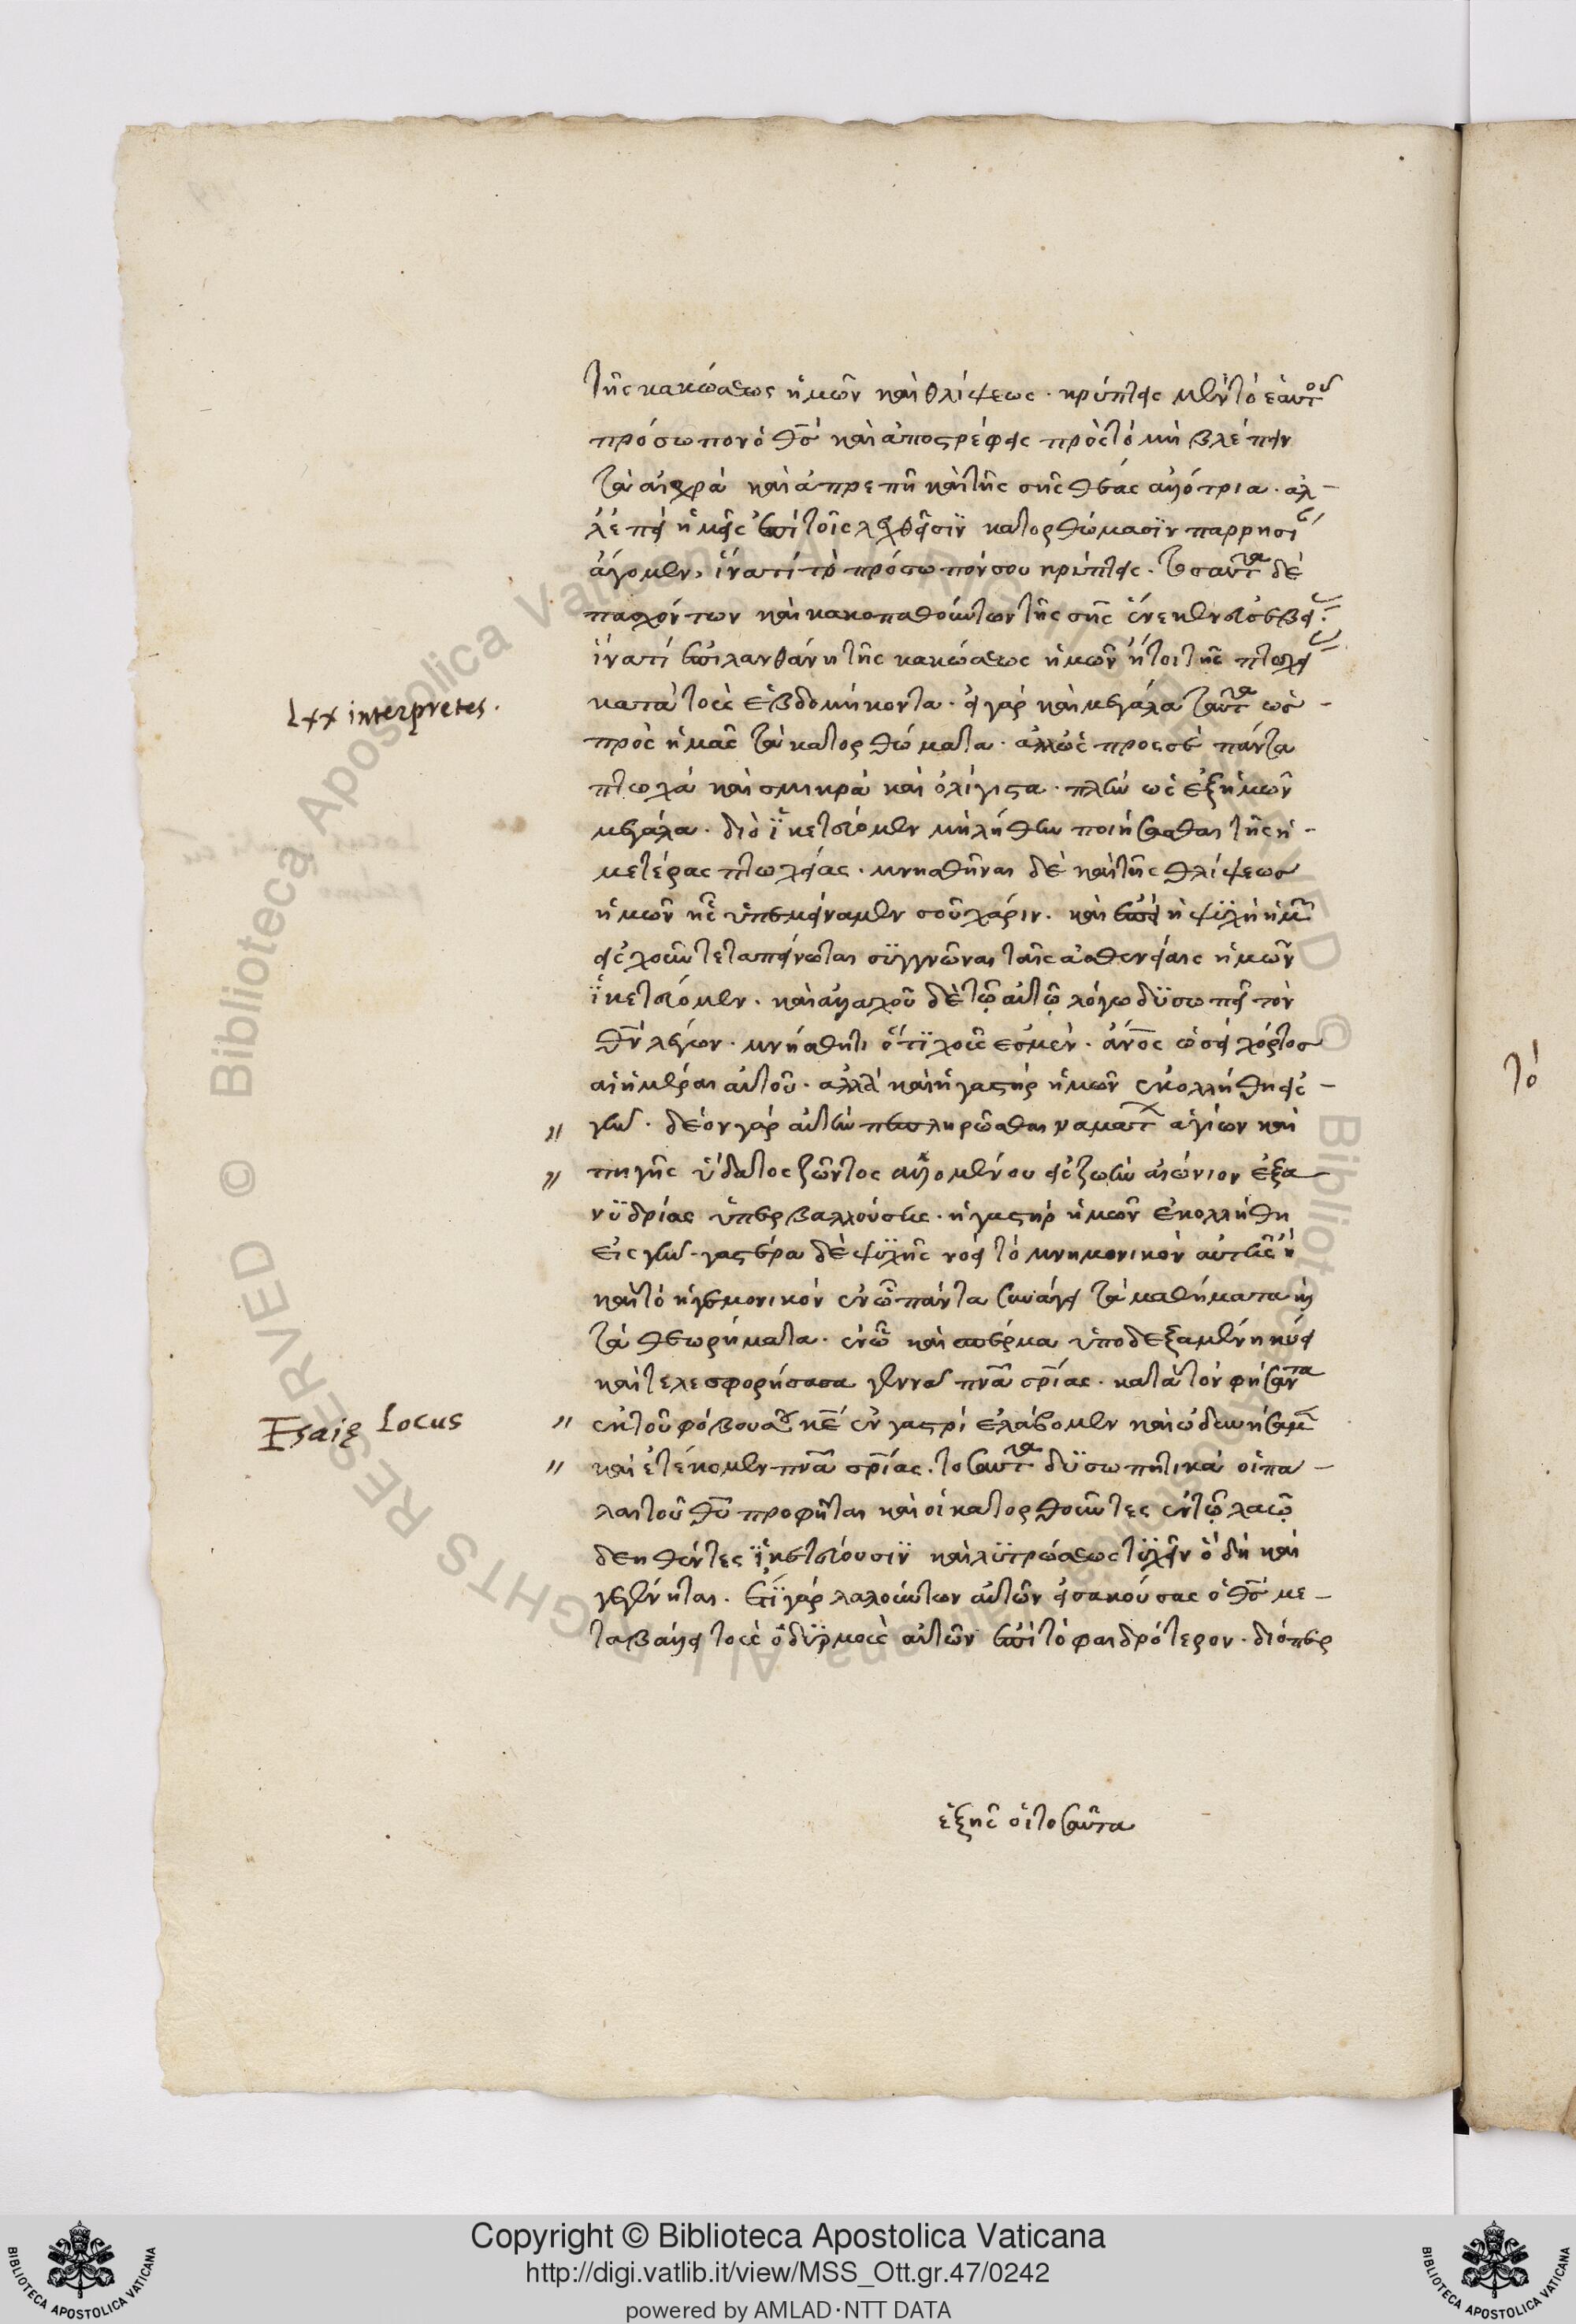 τῆς κακώσεως ἡμῶν καὶ θλίψεως. κρύπτεις μὲν τὸ ἑαυτοῦ
πρόσωπον ὁ θς καὶ ἀποστρέφεις πρὸς τὸ μὴ βλέπειν
τὰ αἰσχρὰ καὶ ἀπρεπῆ καὶ τῆς σῆς θέας ἀλλότρια. ἀλ-
λ' ἐπεὶ ἡμεῖς ἐπὶ τοῖς λεχθεῖσιν κατορθώμασιν παρρησί
ἄγομεν, ἱνατί τὸ πρόσωπόν σου κρύπτεις. τοσαῦτα δὲ
πασχόντων καὶ κακοπαθούντων τῆς σῆς ἕνεκεν εὐσεβεί
ἱνατί ἐπιλανθάνη τῆς κακώσεως ἡμῶν ἤτοι τῆς πτωχεί
Lxx interpretes.
κατὰ τοὺς ἑβδομήκοντα. εἰ γὰρ καὶ μεγάλα ταῦτα ὡς
πρὸς ἡμᾶς τὰ κατορθώματα. ἀλλ' ὡς πρὸς σὲ πάντα
πτωχὰ καὶ σμικρὰ καὶ ὀλίγιστα. πλὴν ὡς ἐξ ἡμῶν
μεγάλα. διὸ ἱκετεύομεν μὴ λήθην ποιήσασθαι τῆς ἡ-
μετέρας πτωχείας. μνησθῆναι δὲ καὶ τῆς θλίψεως
ἡμῶν ἧς ὑπεμείναμεν σοῦ χάριν. καὶ ἐπεὶ ἡ ψυχὴ ἡμῶν
εἰς χοῦν τεταπείνωται συγγνῶναι ταῖς ἀσθενείαις ἡμῶν
ἱκετεύομεν. καὶ ἀλλαχοῦ δὲ τῷ αὐτῷ λόγω δυσωπεῖ τὸν
θν λέγων. μνήσθητι ὅτι χοῦς ἐσμέν. ἄνος ὡσεὶ χόρτος
αἱ ἡμέραι αὐτοῦ. ἀλλὰ καὶ ἡ γαστὴρ ἡμῶν ἐκολλήθη εἰς
γῆν. δέον γὰρ αὐτὴν πεπληρῶσθαι ναμάτ ἁγίων καὶ
πηγῆς ὕδατος ζῶντος ἁλλομένου εἰς ζωὴν αἰώνιον ἐξ ἀ
νυδρίας ὑπερβαλλούσης. ἡ γαστὴρ ἡμῶν ἐκολλήθη
εἰς γῆν. γαστέρα δὲ ψυχῆς νόει τὸ μνημονικὸν αὐτῆς ἢ
καὶ τὸ ἡγεμονικὸν ἐν ὧ πάντα συνάγει τὰ μαθήματα καὶ
τὰ θεωρήματα. ἐν ὧ καὶ σπέρμα ὑποδεξαμένη κύει
καὶ τελεσφορήσασα γεννᾶ πνα σρίας. κατὰ τὸν φήσαντα
Esaię Locus
ἐκ τοῦ φόβου σου κε ἐν γαστρὶ ἐλάβομεν καὶ ὠδινήσαμεν
καὶ ἐτέκομεν πνα σρίας. τοσαῦτα δυσωπητικὰ οἱ πά-
λαι τοῦ θυ προφῆται καὶ οἱ κατορθοῦντες ἐν τῷ λαῷ
δεηθέντες ἱκετεύουσιν καὶ λυτρώσεως τυχεῖν ὃ δὴ καὶ
γεγένηται. ἔτι γὰρ λαλούντων αὐτῶν εἰσακούσας ὁ θς με-
ταβάλλει τοὺς ὀδυρμοὺς αὐτῶν ἐπὶ τὸ φαιδρότερον. διόπερ
ἑξῆς οἱ τοσαῦτα
τὸ
Copyright © Biblioteca Apostolica Vaticana
http://digi.vatlib.it/view/MSS_Ott.gr.47/0242
powered by AMLAD·NTT DATA
BIBLIOTECA APOSTOLICA VATICANA
BIBLIOTECA APOSTOLICA VATICANA